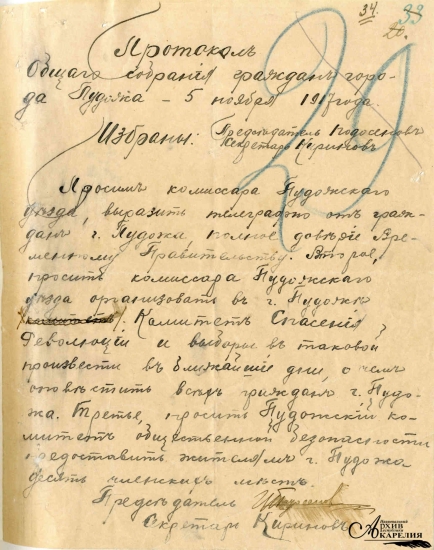 34. 33
20.
29
Протоколъ
Общаго собранія гражданъ горо-
да Пудожа – 5 ноября 1917 года.
Избраны: Предсѣдатель
Секретарь Кириновъ
Просимъ комиссара Пудожскаго
уѣзда, выразить телеграфно отъ граж-
данъ г. Пудожа полное довѣріе Вре-
менному Правительству. Второе,
просить комиссара Пудожскаго
уѣзда организовать въ г. Пудожѣ
Комитетъ Спасенія
Революціи и выборы въ таковой
произвести въ ближайшіе дни, о чемъ
оповѣстить всѣхъ гражданъ г. Пудо-
жа. Третье, просить Пудожскій ко-
митетъ общественной безопасности
предоставить жителямъ г. Пудожа
десять членскихъ мѣстъ.
Предсѣдатель
Секретарь Кириновъ
Национальный
АРХИВ
КАРЕЛИЯ